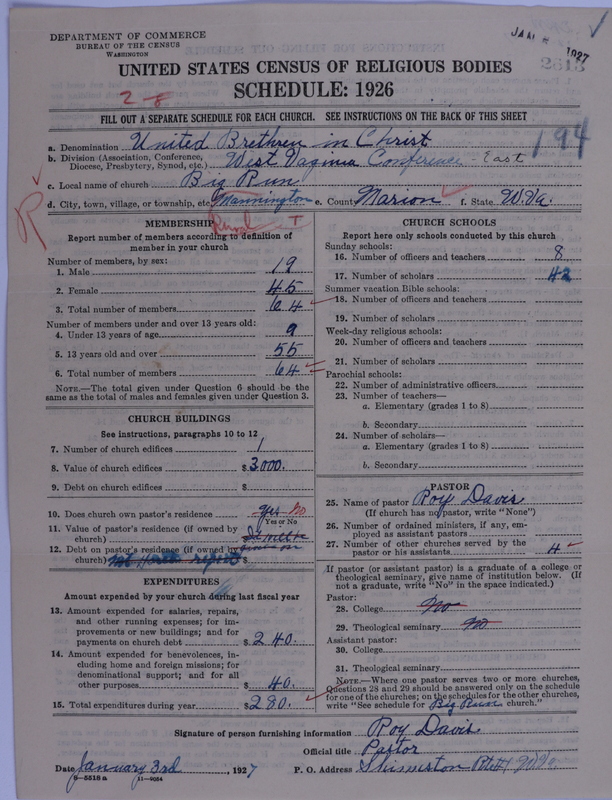 DEPARTMENT OF COMMERCE
BUREAU OF THE CENSUS
WASHINGTON
JAN 1927
2613
UNITED STATES CENSUS OF RELIGIOUS BODIES
SCHEDULE: 1926
2-8
FILL OUT A SEPARATE SCHEDULE FOR EACH CHURCH. SEE INSTRUCTIONS ON THE BACK OF THIS SHEET
194
a. Denomination United Brethren in Christ
b. Division (Association, Conference, Diocese, Presbytery, Synod, etc.) West Virginia Conference - East
c. Local name of church Big Run
d. City, town, village, or township, etc. Mannington e. County Marion f. State W. Va.
R
Rural T
MEMBERSHIP
Report number of members according to definition of member in your church
Number of members, by sex:
1. Male 19
2. Female 45
3. Total number of members 64
Number of members under and over 13 years old:
4. Under 13 years of age 9
5. 13 years old and over 55
6. Total number of members 64
NOTE.—The total given under Question 6 should be the same as the total of males and females given under Question 3.
CHURCH BUILDINGS
See instructions, paragraphs 10 to 12
7. Number of church edifices 1
8. Value of church edifices $3000.
9. Debt on church edifices $
10. Does church own pastor's residence yes No
Yes or No
11. Value of pastor's residence (if owned by church)
12. Debt on pastor's residence (if owned by church) $
EXPENDITURES
Amount expended by your church during last fiscal year
13. Amount expended for salaries, repairs, and other running expenses; for improvements or new buildings; and for payments on church debt $240.
14. Amount expended for benevolences, including home and foreign missions; for denominational support; and for all other purposes $40.
15. Total expenditures during year $280.
CHURCH SCHOOLS
Report here only schools conducted by this church
Sunday schools:
16. Number of officers and teachers 8
17. Number of scholars 42
Summer vacation Bible schools:
18. Number of officers and teachers
19. Number of scholars
Week-day religious schools:
20. Number of officers and teachers
21. Number of scholars
Parochial schools:
22. Number of administrative officers
23. Number of teachers—
a. Elementary (grades 1 to 8)
b. Secondary
24. Number of scholars—
a. Elementary (grades 1 to 8)
b. Secondary
PASTOR
25. Name of pastor Roy Davis
(If church has no pastor, write "None")
26. Number of ordained ministers, if any, employed as assistant pastors
27. Number of other churches served by the pastor or his assistants 4
If pastor (or assistant pastor) is a graduate of a college or theological seminary, give name of institution below. (If not a graduate, write "No" in the space indicated.)
Pastor:
28. College No
29. Theological seminary No
Assistant pastor:
30. College
31. Theological seminary
NOTE.—Where one pastor serves two or more churches, Questions 28 and 29 should be answered only on the schedule for one of the churches; on the schedules for the other churches, write "See schedule for Big Run church."
Signature of person furnishing information Roy Davis
Official title Pastor
Date January 3rd, 1927 P. O. Address
9-5518 a 11-9084